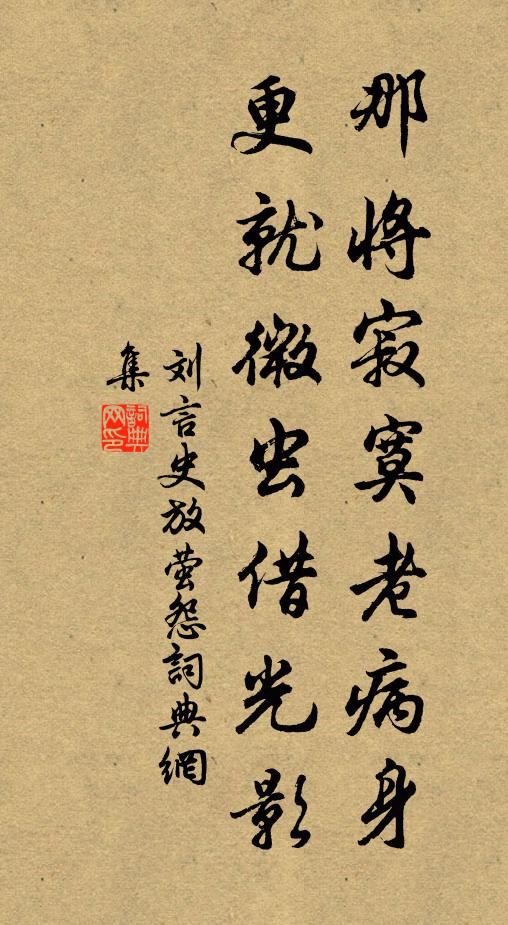 那将寂寞老病身
更就微虫借光影
刘言史放萤怨詞典網
集
詞典网印